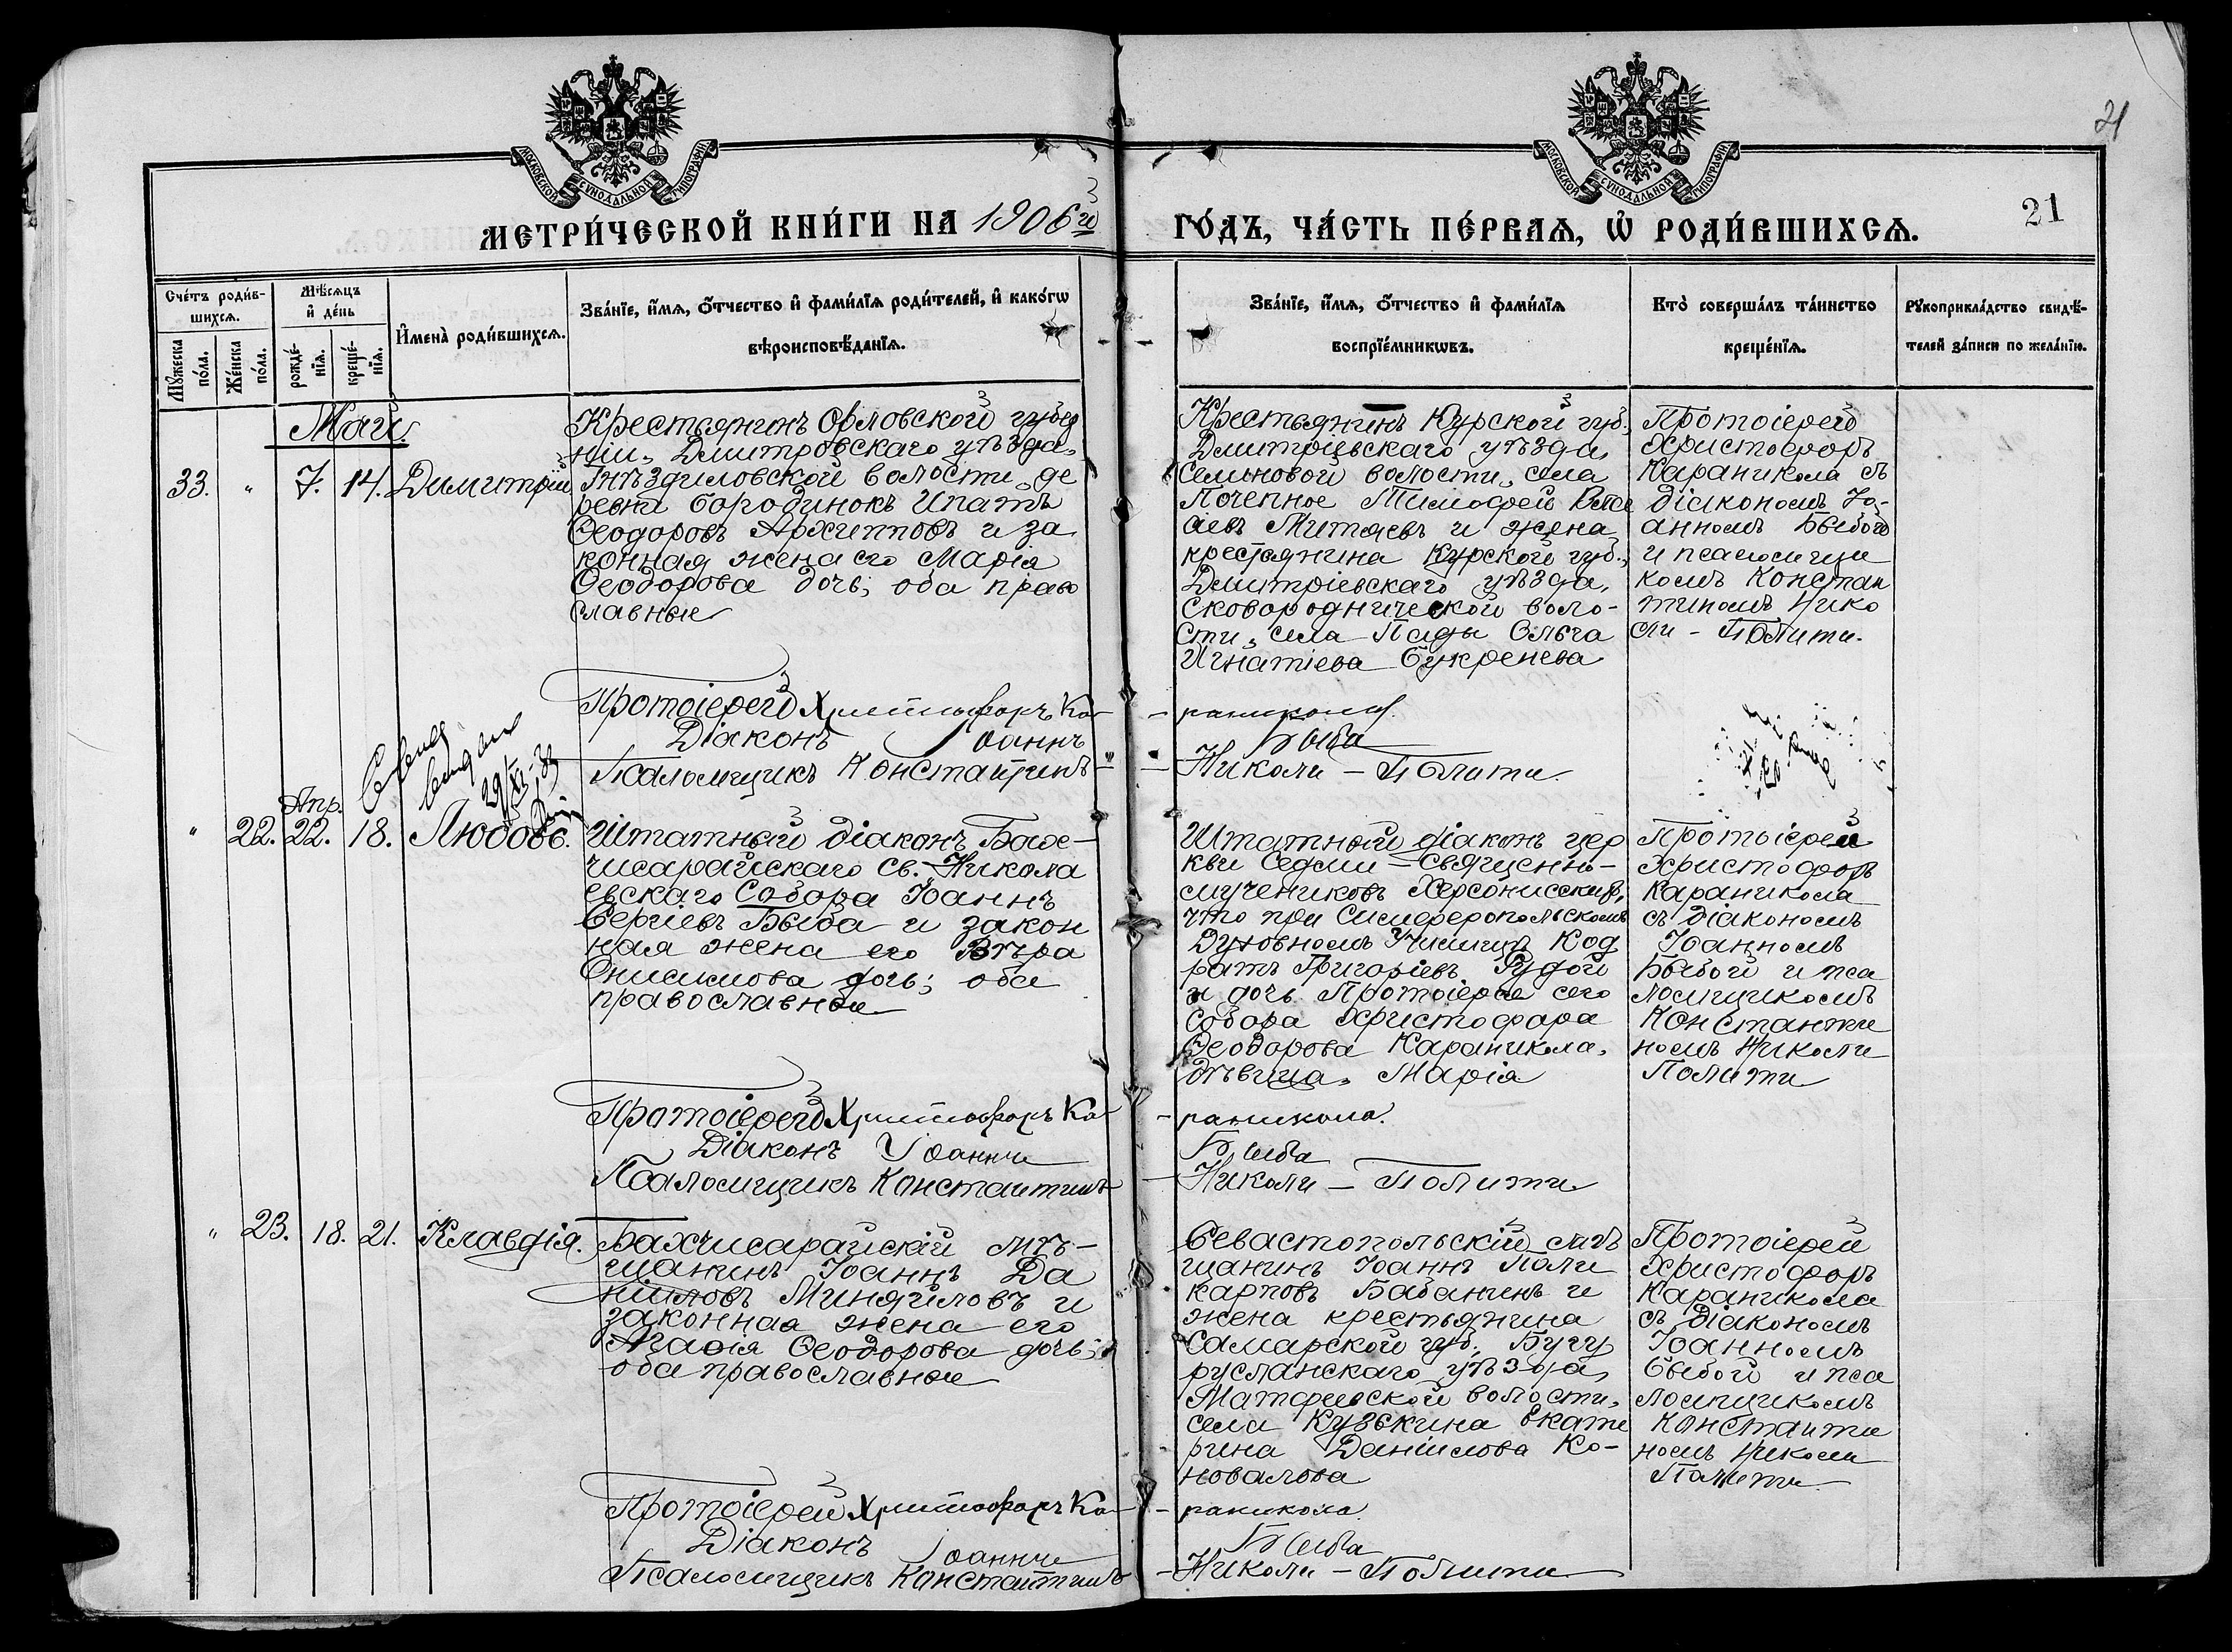 21
МОСКОВСКОЙ СѴНОДАЛЬНОЙ ТИПОГРАФІИ
МОСКОВСКОЙ СѴНОДАЛЬНОЙ ТИПОГРАФІИ
21
МЕТРИ́ЧЕСКОЙ КНИ́ГИ НА 1906й
ГО́ДЪ, ЧА́СТЬ ПЕ́РВАѦ, Ѡ҆ РОДИ́ВШИХСѦ.
Сче́тъ роди́в-
шихсѧ.
Мѣ́сѧцъ
и҆ де́нь
Мꙋ́жеска
по́ла.
Же́нска
по́ла.
рожде́-
нїѧ.
креще́-
нїѧ.
И҆мена̀ роди́вшихсѧ.
Зва́нїе, и҆́мѧ, ѻ҆́тчество и҆ фами́лїѧ роди́телей, и҆ како́гѡ
вѣроисповѣ́данїѧ.
Зва́нїе, и҆́мѧ, ѻ҆́тчество и҆ фами́лїѧ
воспрїе́мникѡвъ.
Кто̀ соверша́лъ та́инство
креще́нїѧ.
Рꙋкоприкла́дство свидѣ́-
телей за́писи по жела́нїю.
Май.
33. " 7. 14. Димитрій
Крестьянинъ Орловской губер
ніи, Дмитровскаго уѣзда,
Гнѣздиловской волости, де
ревни Бородинокъ Ипатъ
Ѳеодоровъ Архипповъ и за
конная жена его Марія
Ѳеодорова дочь; оба право
славные
Крестьянинъ Курской губ.,
Дмитріевскаго уѣзда,
Селиновой волости, села
Почепное Тимофей
сіевъ Митяевъ и жена
крестьянина Курской губ.,
Дмитріевскаго уѣзда,
Сковороднической воло-
сти, села Пады Ольга
Игнатіева Букренева
Протоіерей
Христофоръ
Караникола съ
діакономъ Іо-
анномъ Быбой
и псаломщи
комъ Констан
тиномъ Нико
ли - Полити.
Протоіерей Христофоръ Ка-
- раникола.
Діаконъ Іоаннъ
Быба
Псаломщикъ Константинъ -
- Николи - Полити.
Апр.
" 22. 22. 18. Любовь.
29/XI-
Штатный діаконъ Бах-
чисарайскаго Св. Никола
евскаго Собора Іоаннъ
Сергіевъ Быба и закон
ная жена его Вѣра
Онисимова дочь; оба
православные
Штатный діаконъ цер
кви Седми - Священно-
мучениковъ Херсонисскихъ,
что при Симферопольскомъ
Духовномъ Училищѣ Код
ратъ Григоріевъ Рудой
и дочь Протоіерея сего
Собора Христофора
Ѳеодорова Караникола,
дѣвица, Марія
Протоіерей
Христофоръ
Караникола
съ діакономъ
Іоанномъ
Быбой и пса
ломщикомъ
Константи
номъ Николи
Полити
Протоіерей Христофоръ Ка-
- раникола.
Діаконъ Іоаннъ
Быба
Псаломщикъ Константинъ
- Николи - Полити
" 23. 18. 21. Клавдія.
Бахчисарайскій мѣ-
щанинъ Іоаннъ Да
ниловъ Миняйловъ и
законная жена его
Агафія Ѳеодорова дочь;
оба православные
Севастопольскій мѣ
щанинъ Іоаннъ Поли
карповъ Бабанинъ и
жена крестьянина
Самарской губ., Бугу
русланскаго уѣзда,
Матфеевской волости,
села Кузькина Екате
рина Даніилова Ко-
новалова
Протоіерей
Христофоръ
Караникола
съ діакономъ
Іоанномъ
Быбой и пса
ломщикомъ
Константи
номъ Николи
Полити
Протоіерей Христофоръ Ка-
- раникола.
Діаконъ Іоаннъ
Быба
Псаломщикъ Константинъ
- Николи - Полити